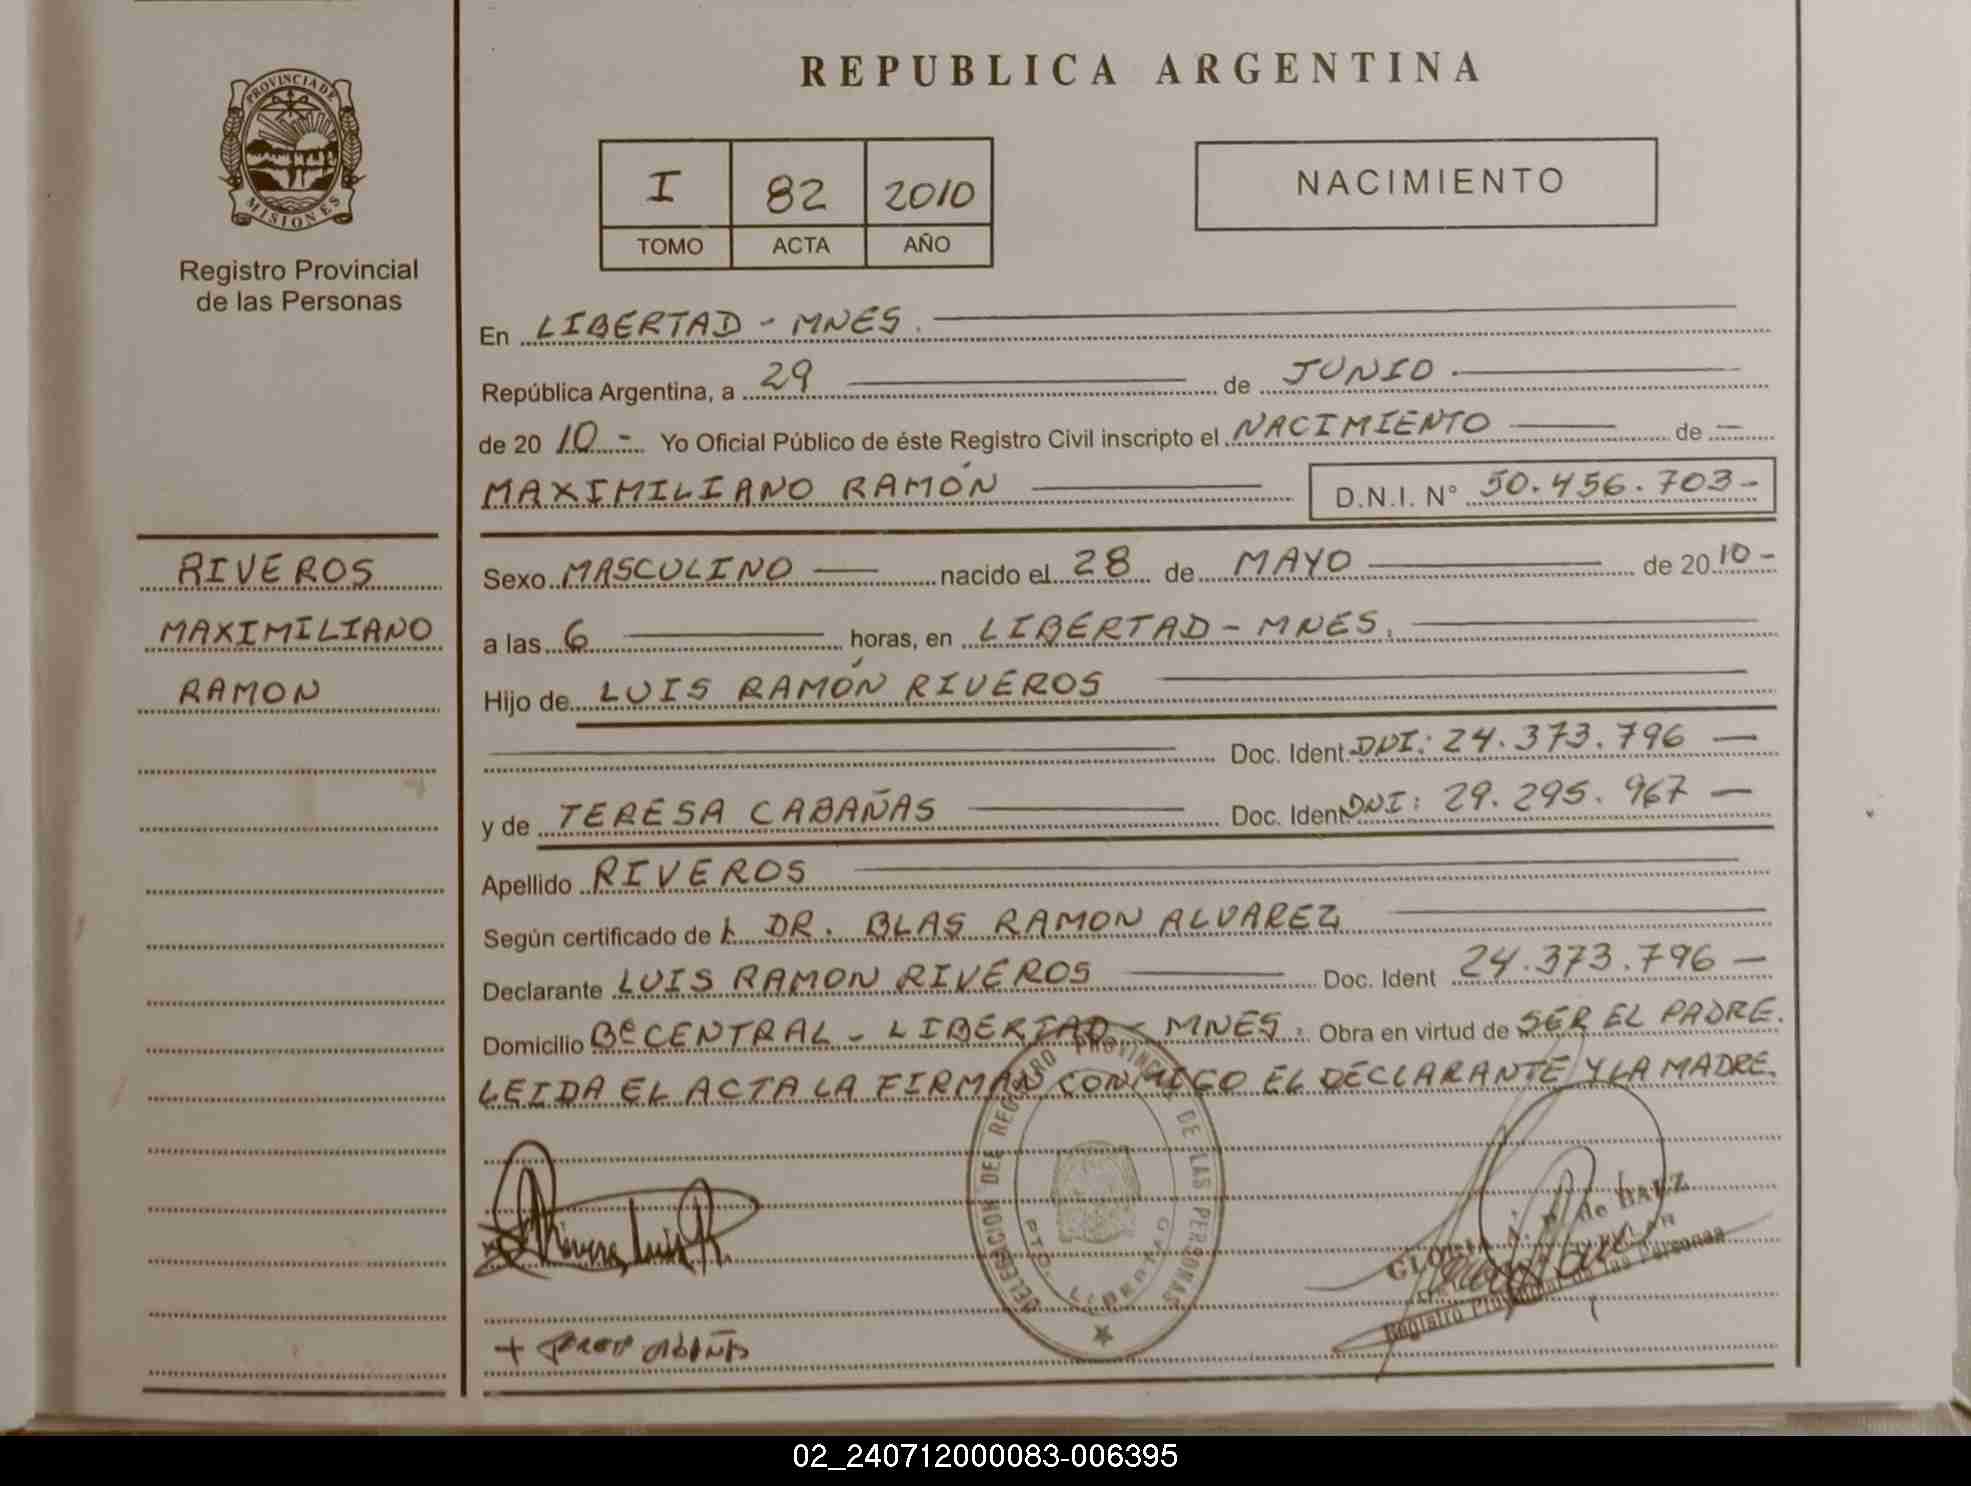 REPUBLICA ARGENTINA
PROVINCIA DE
MISIONES
Registro Provincial
de las Personas
I 82 2010
TOMO ACTA AÑO
NACIMIENTO
En LIBERTAD - MNES.
República Argentina, a 29 de JUNIO
de 20 10.- Yo Oficial Público de éste Registro Civil inscripto el NACIMIENTO de -
MAXIMILIANO RAMÓN D.N.I. N° 50.456.703-
RIVEROS
MAXIMILIANO
RAMON
Sexo MASCULINO nacido el 28 de MAYO de 20 10-
a las 6 horas, en LIBERTAD - MNES.
Hijo de LUIS RAMÓN RIVEROS
Doc. Ident. DNI: 24.373.796 -
y de TERESA CABAÑAS Doc. Ident DNI: 29.295.967 -
Apellido RIVEROS
Según certificado de DR. BLAS RAMON ALVAREZ
Declarante LUIS RAMON RIVEROS Doc. Ident 24.373.796 -
Domicilio Bº CENTRAL - LIBERTAD - MNES. Obra en virtud de SER EL PADRE.
LEIDA EL ACTA LA FIRMAN CONMIGO EL DECLARANTE Y LA MADRE.
DELEGACION DEL REGISTRO PROVINCIAL DE LAS PERSONAS
PTO. LIBERTAD
Luis R.
GLORIA
Registro Provincial de las Personas
02_240712000083-006395